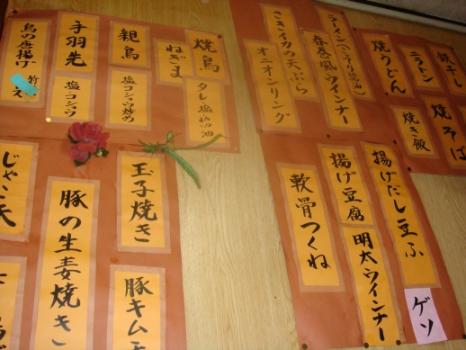 焼鳥
タレ 塩
ねぎま
親鳥
塩コショウ炒め
手羽先
塩コショウ
鳥の唐揚げ
玉子焼き
豚の生姜焼き
じゃこ天
豚キムチ
ラーメン
春巻風ウインナー
さきイカの天ぷら
オニオンリング
餃子
焼うどん
焼そば
焼き飯
揚げだし豆ふ
揚げ豆腐
明太ウインナー
軟骨つくね
ゲソ